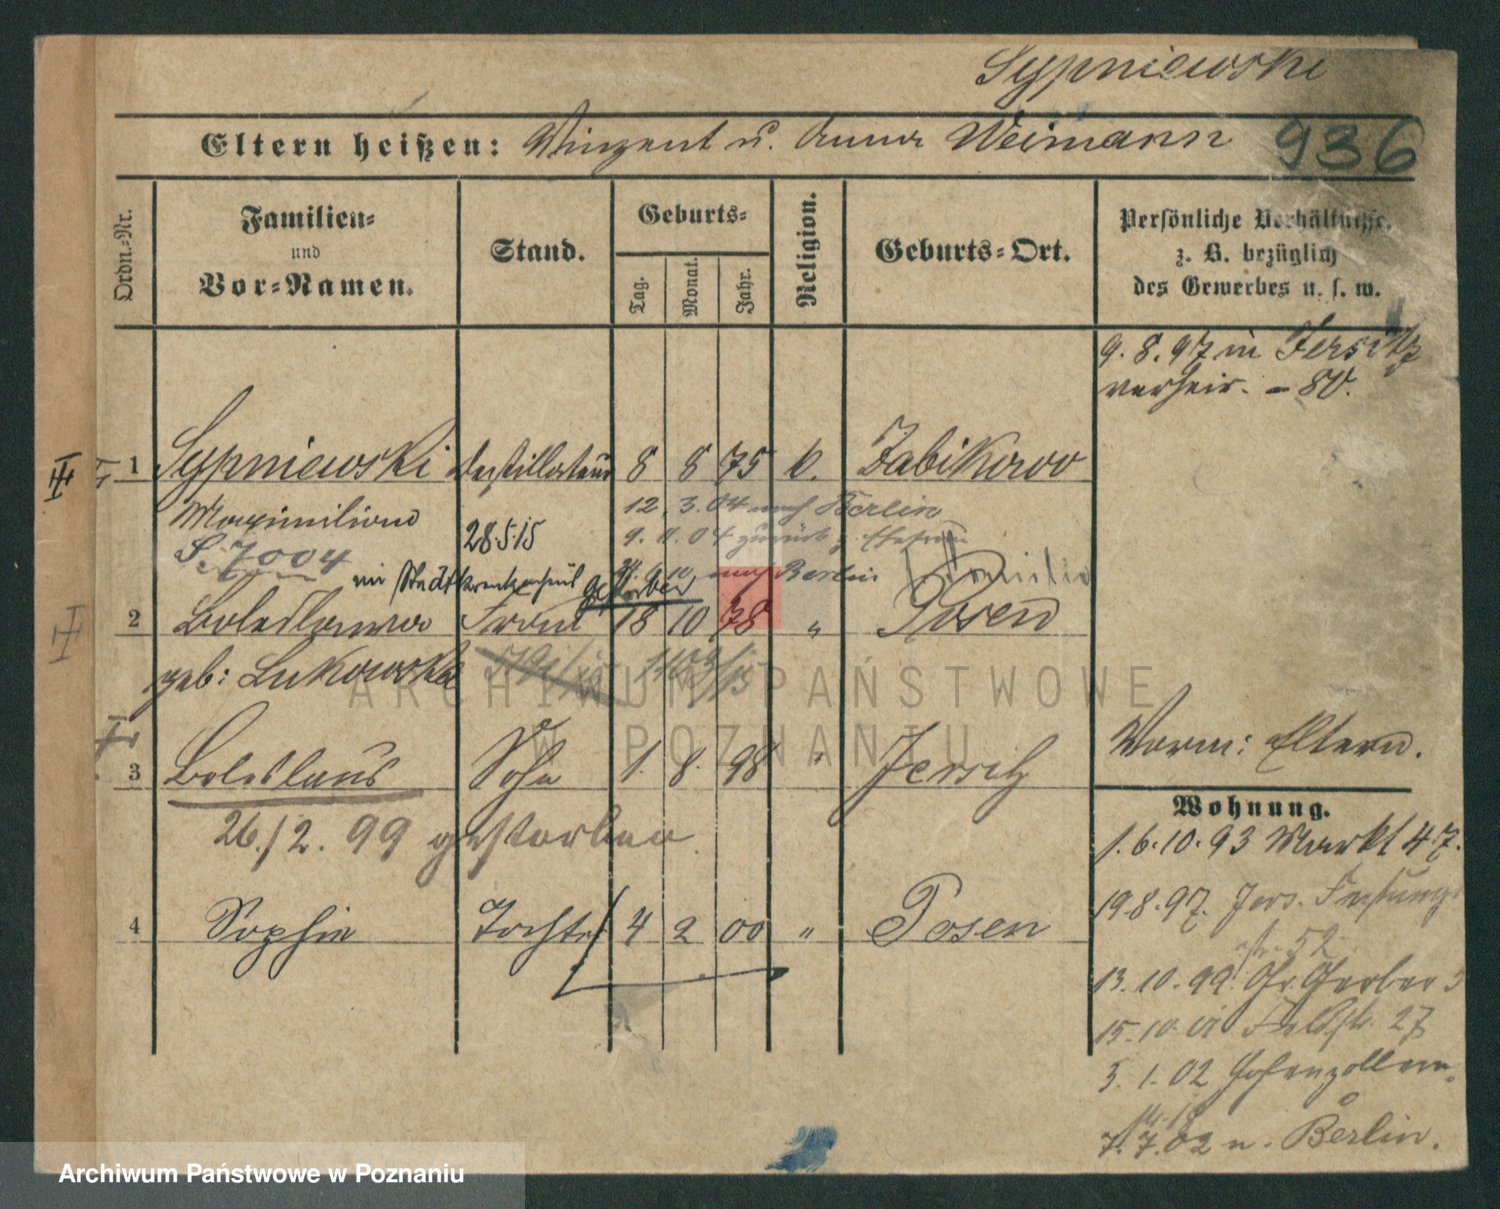 Sypniewski
Eltern heißen: Vinzent u. Anna Weimann 936
Ordn.-Nr.
Familien-
und
Vor-Namen.
Stand.
Geburts-
Tag.
Monat.
Jahr.
Religion.
Geburts-Ort.
Persönliche Verhältnisse,
z. B. bezüglich
des Gewerbes u. s. w.
9. 8. 97 in Jersitz
verheir. - 80.
1 Sypniewski Destillateur 8 8 75 k. Zabikowo
Maximilian
12. 3. 04 nach Berlin
28.5.15
04 zurück z. Ehefrau
S. 7004
nach Berlin Familie
im Stadtkrankenhaus gestorben
2 Boleslawa Frau 18 10 78 " Posen
geb: Lukowska
1103/15
3 Boleslaus Sohn 1. 8. 98 " Jersitz
26./2. 99 gestorben
4 Sophie Tochter 4 2 00 " Posen
Vorm: Eltern.
Wohnung.
1. 6.10.93 Markt 47.
19.8.97. Jers. Festungs
str. 52
13. 10. 99. Gr. Gerber 3
15. 10. 01 Feldstr. 27
3. 1. 02 Hohenzollern
str. 18
7. 7. 02 n. Berlin.
ARCHIWUM PAŃSTWOWE
W POZNANIU
Archiwum Państwowe w Poznaniu